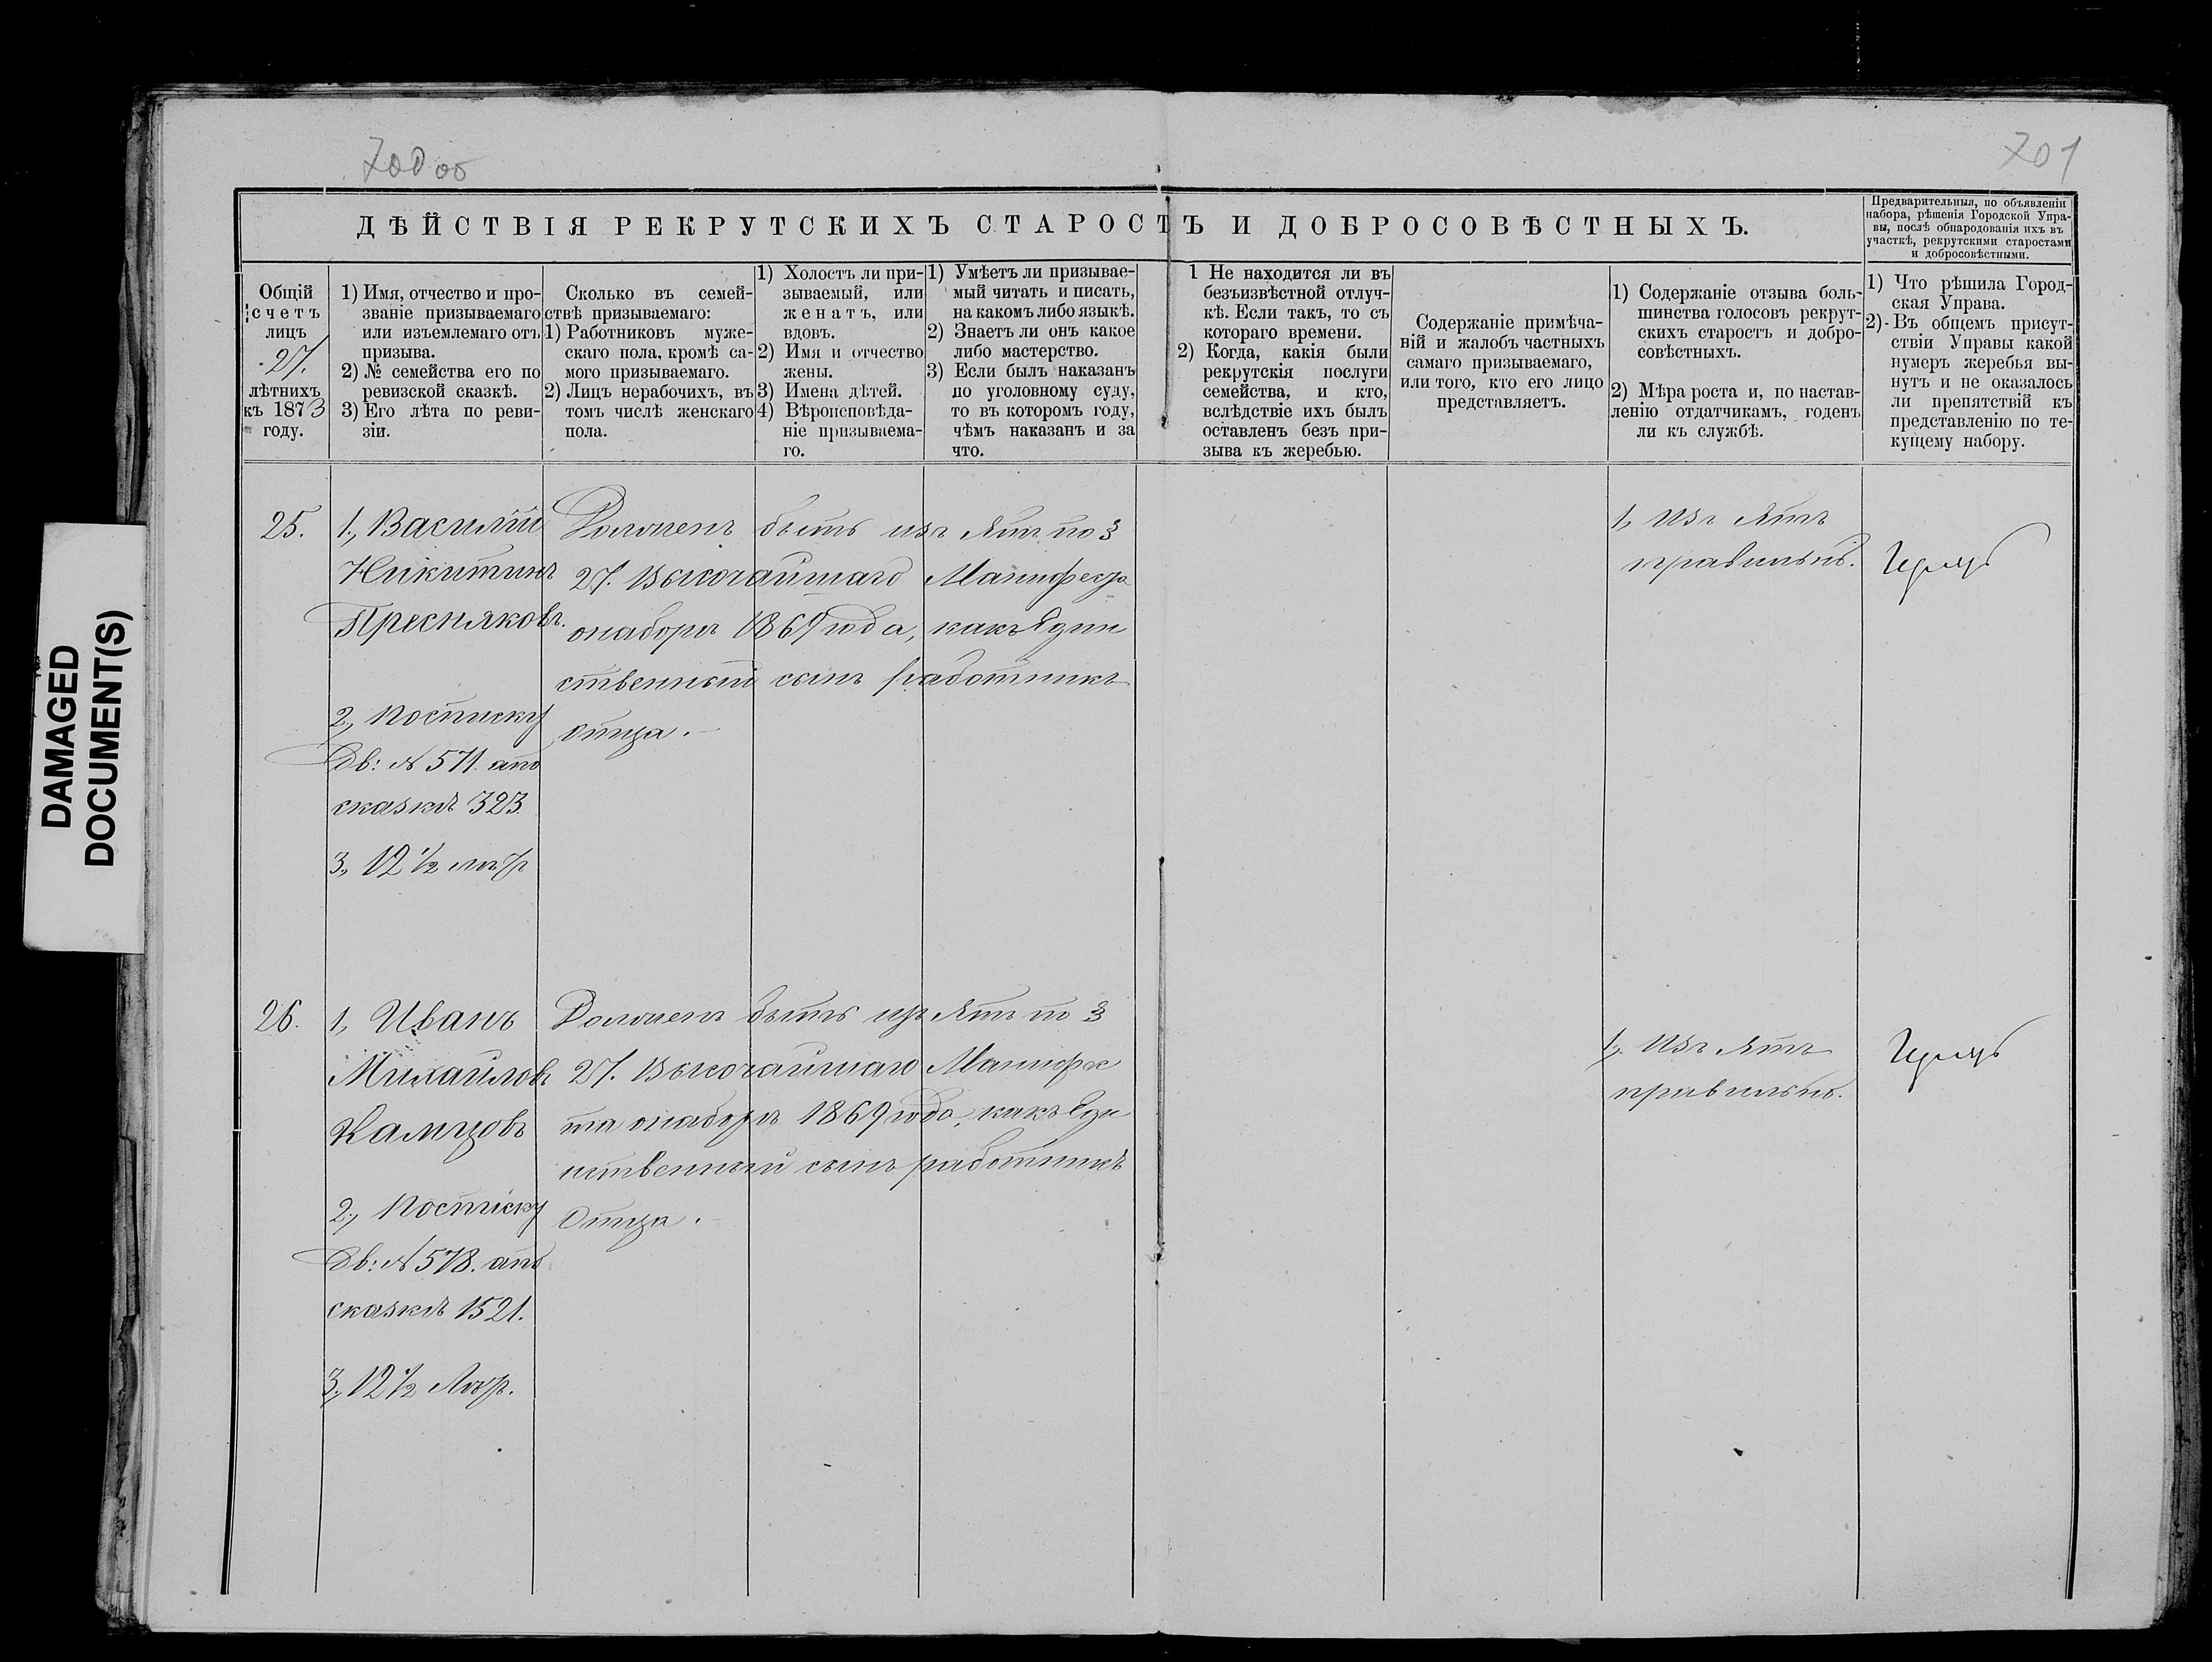 700 об
701
ДѢЙСТВІЯ РЕКРУТСКИХЪ СТАРОСТЪ И ДОБРОСОВѢСТНЫХЪ.
Предварительныя, по объявленіи
набора, рѣшенія Городской Упра-
вы, послѣ обнародованія ихъ въ
участкѣ, рекрутскими старостами
и добросовѣстными.
Общій
счетъ
лицъ
27.
лѣтнихъ
къ 1873
году.
1) Имя, отчество и про-
званіе призываемаго
или изъемлемаго отъ
призыва.
2) № семейства его по
ревизской сказкѣ.
3) Его лѣта по реви-
зіи.
Сколько въ семей-
ствѣ призываемаго:
1) Работниковъ муже-
скаго пола, кромѣ са-
мого призываемаго.
2) Лицъ нерабочихъ, въ
томъ числѣ женскаго
пола.
1) Холостъ ли при-
зываемый, или
женатъ, или
вдовъ.
2) Имя и отчество
жены.
3) Имена дѣтей.
4) Вѣроисповѣда-
ніе призываема-
го.
1) Умѣетъ ли призывае-
мый читать и писать,
на какомъ либо языкѣ.
2) Знаетъ ли онъ какое
либо мастерство.
3) Если былъ наказанъ
по уголовному суду,
то въ которомъ году,
чѣмъ наказанъ и за
что.
1 Не находится ли въ
безъизвѣстной отлуч-
кѣ. Если такъ, то съ
котораго времени.
2) Когда, какія были
рекрутскія послуги
семейства, и кто,
вслѣдствіе ихъ былъ
оставленъ безъ при-
зыва къ жеребью.
Содержаніе примѣча-
ній и жалобъ частныхъ
самаго призываемаго,
или того, кто его лицо
представляетъ.
1) Содержаніе отзыва боль-
шинства голосовъ рекрут-
скихъ старостъ и добро-
совѣстныхъ.
2) Мѣра роста и, по настав-
ленію отдатчикамъ, годенъ
ли къ службѣ.
1) Что рѣшила Город-
ская Управа.
2) Въ общемъ присут-
ствіи Управы какой
нумеръ жеребья вы-
нутъ и не оказалось
ли препятствій къ
представленію по те-
кущему набору.
25.
1., Василій
Никитинъ
Пресняковъ.
2., По списку
Дв: № 571. а по
сказкѣ 323.
3., 12 ½ лѣтъ
Долженъ быть изъятъ по §
27. Высочайшаго Манифеста
о наборѣ 1869 года, какъ Един
ственный сынъ работникъ
отца.
1, Изъятъ
правильно.
26.
1, Иванъ
Михайловъ
2., По списку
Дв: № 578. а по
сказкѣ 1521.
3., 12 ½ Лѣтъ.
Долженъ быть изъятъ по §
27. Высочайшаго Манифес
та о наборѣ 1869 года, какъ Еди
нственный сынъ работникъ
Отца.
1., Изъятъ
правильно.
DAMAGED
DOCUMENT(S)